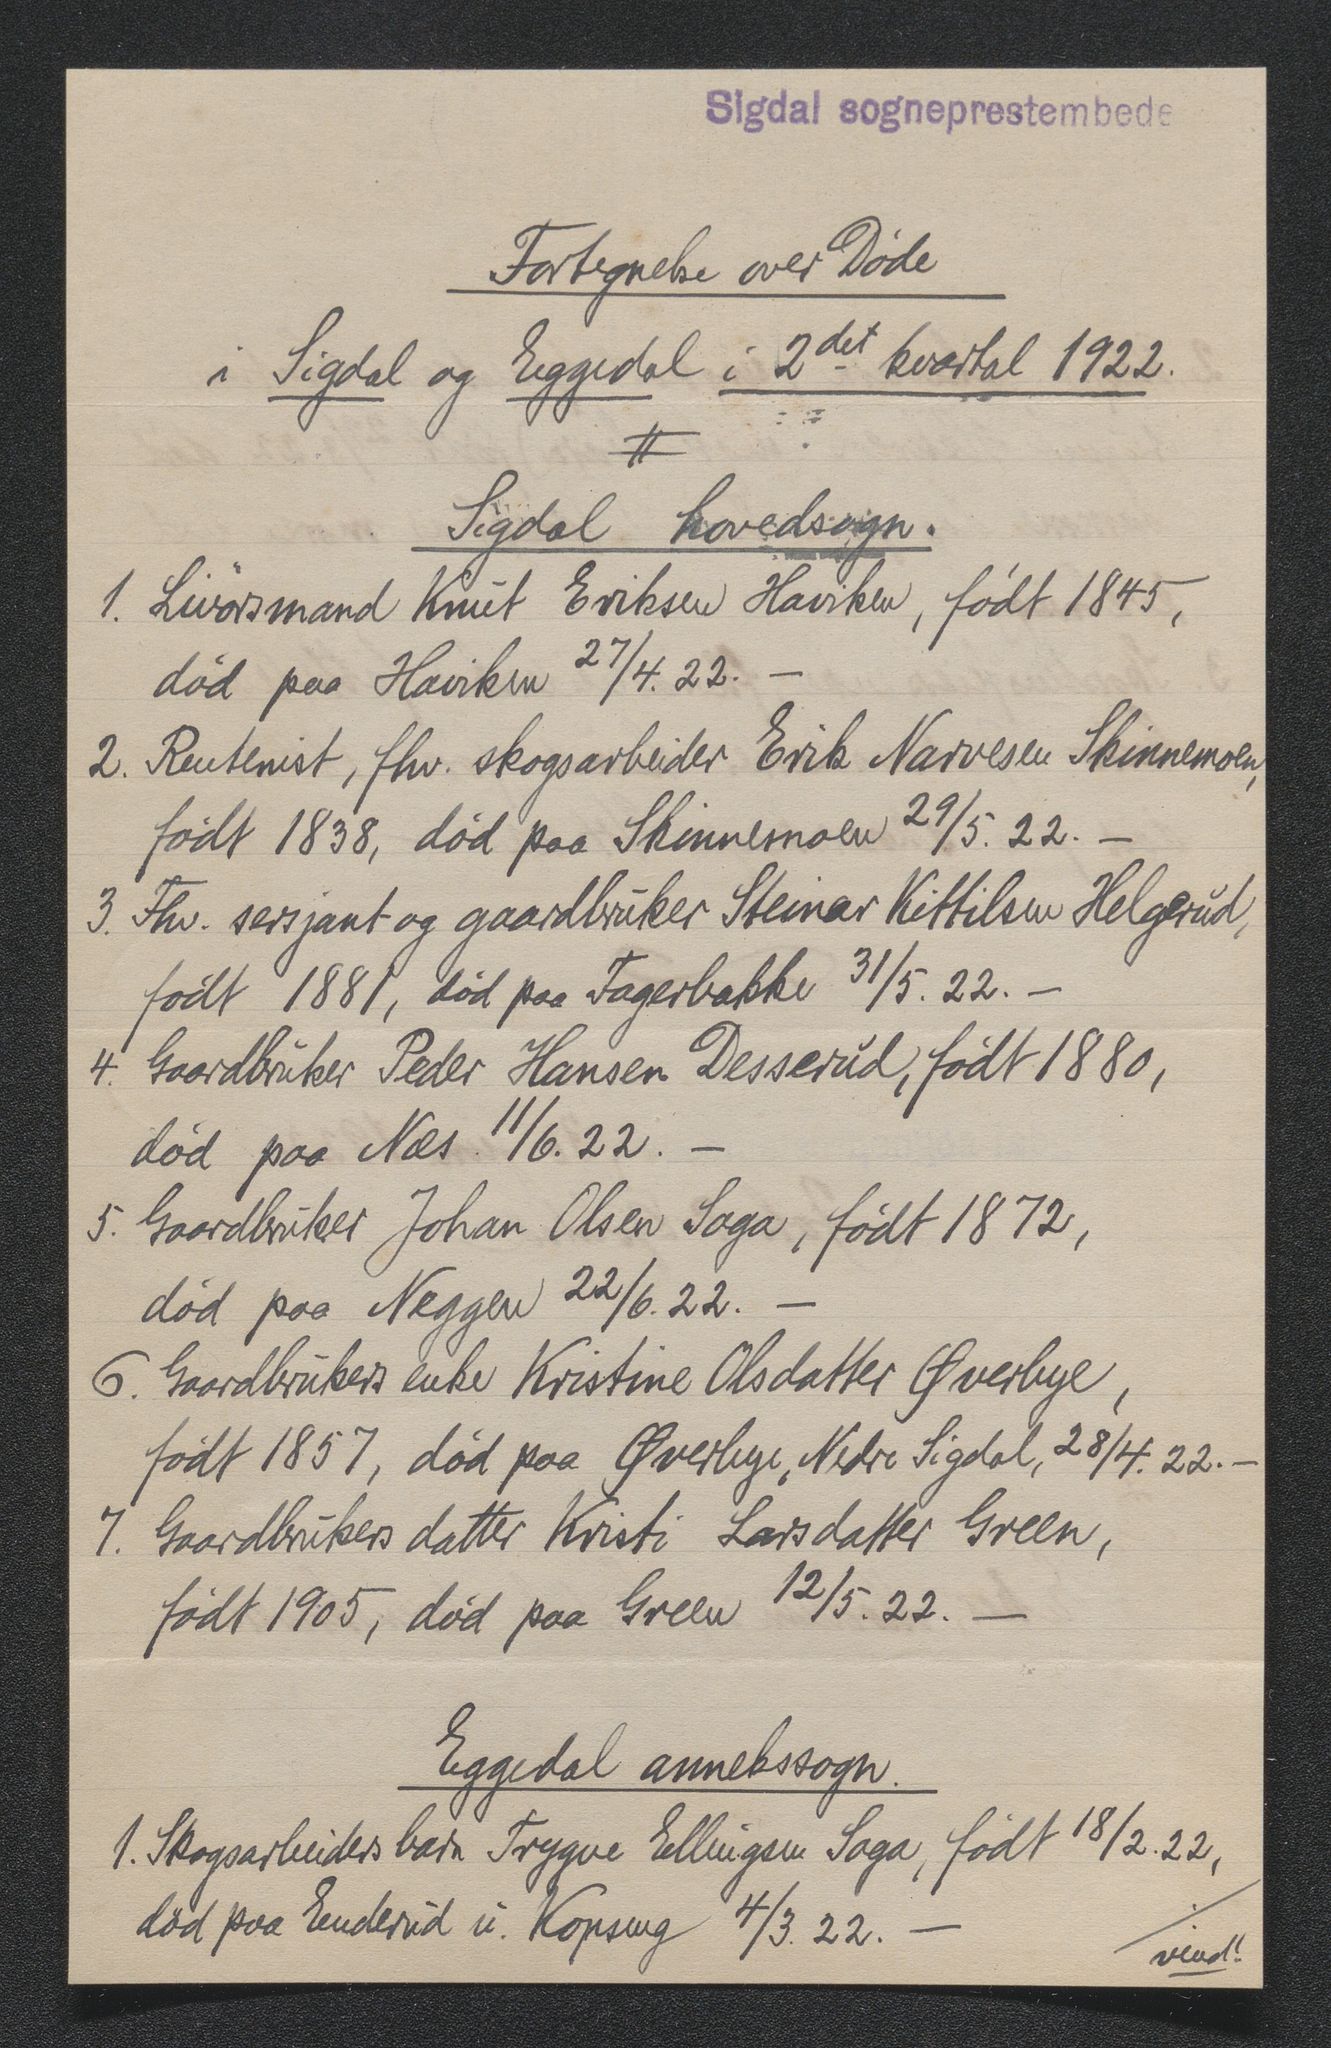 Sigdal sogneprestembede
Fortegnelse over Døde
i Sigdal og Eggedal i 2det kvartal 1922.
Sigdal hovedsogn.
1. Livörsmand Knut Eriksen Haviken, født 1845,
død paa Haviken 27/4. 22. —
2. Rentenist, fhv. skogsarbeider Erik Narvesen Skinnemoen,
født 1838, død paa Skinnemoen 29/5. 22. —
3. Fhv. sersjant og gaardbruker Steinar Kittilsen Helgerud,
født 1881, død paa Fagerbakke 31/5. 22. —
4. Gaardbruker Peder Hansen Desserud, født 1880,
død paa Næs 11/6. 22. —
5. Gaardbruker Johan Olsen Saga, født 1872,
død paa Neggen 22/6. 22. —
6. Gaardbrukers enke Kristine Olsdatter Øverbye,
født 1857, død paa Øverbye, Nedre Sigdal, 28/4. 22. —
7. Gaardbrukers datter Kristi Larsdatter Green,
født 1905, død paa Green 12/5. 22. —
Eggedal annekssogn.
1. Skogsarbeiders barn Trygve Ellingsen Saga, født 18/2. 22,
død paa Enderud u. Kopseng 4/3. 22. —
vend!